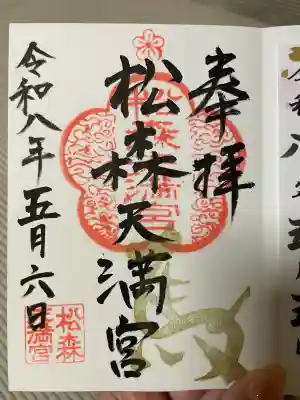 奉拝
松森天満宮
令和八年五月六日
松森
天満宮
松森
天満宮
馬